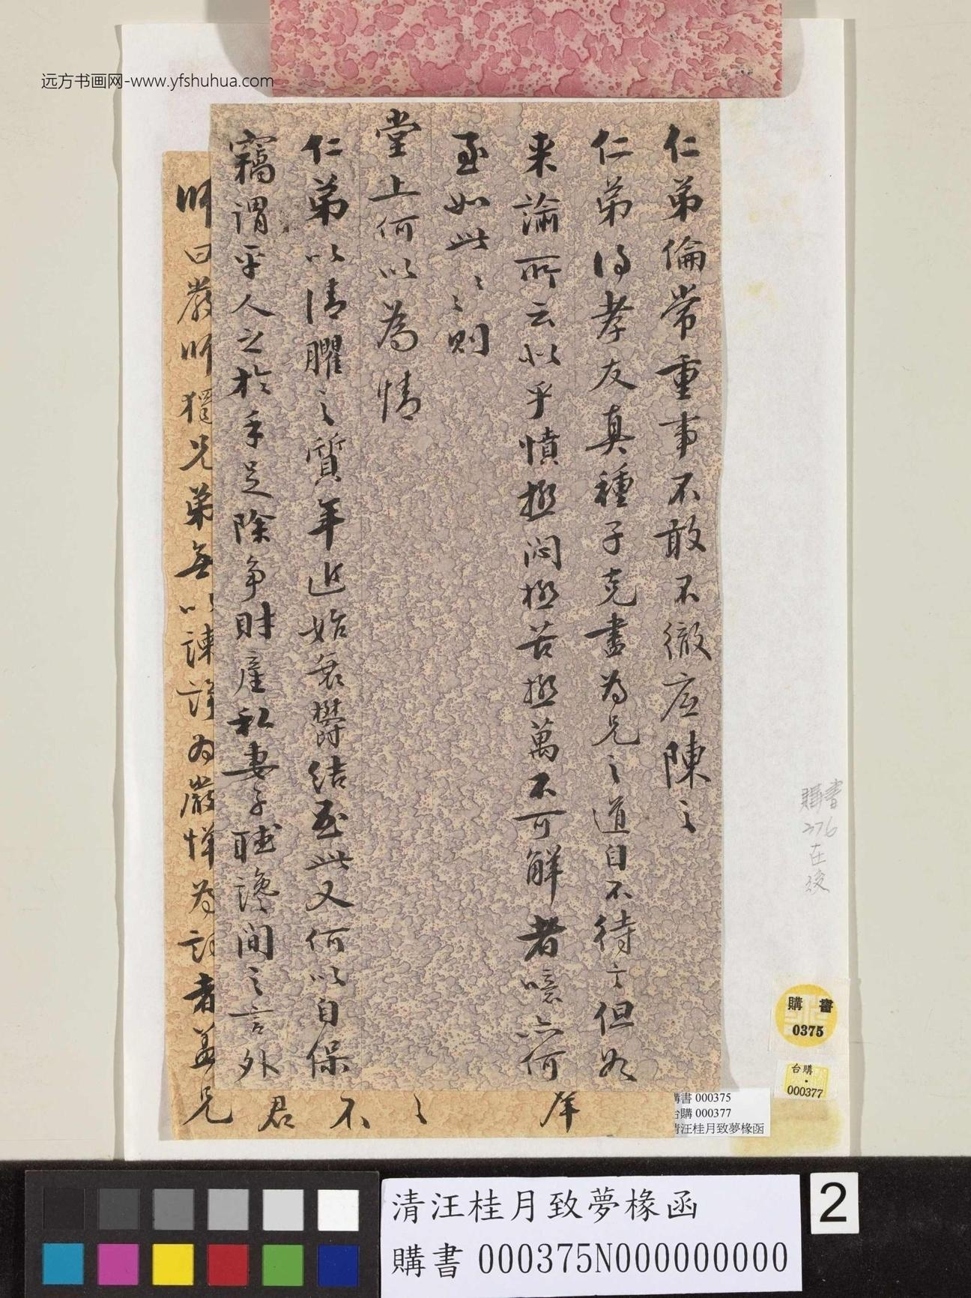 远方书画网-www.yfshuhua.com
仁弟倫常重事不敢不徹底陳之
仁弟得孝友真種子克盡為兄之道自不待言但如
来諭所云非乎憤極悶極苦極萬不可解者噫亦何
至如此々則
堂上何以為情
仁弟以清臞之質年近始衰鬱結至此又何以自保
竊謂平人之於手足除爭財產私妻子聽讒間之言外
師曰嚴師獨兄弟無以諫諍為嚴憚為
者蓋
兄
君
不
々
購書
376
在
後
購書
0375
台購
000377
購書 000375
台購 000377
清汪桂月致夢椽函
清汪桂月致夢椽函
購書 000375N000000000
2